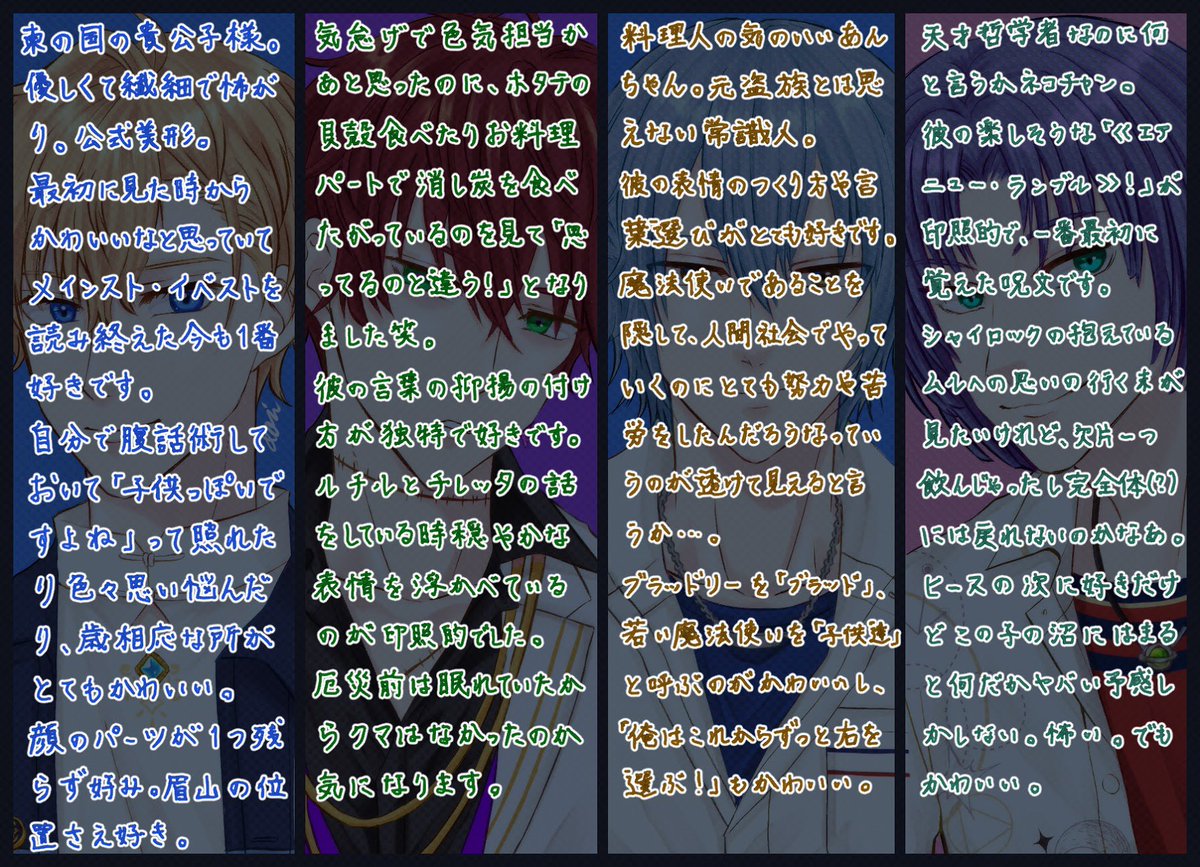 東の国の貴公子様。
優しくて繊細で怖が
り。公式美形。
最初に見た時から
かわいいなと思っていて
メインスト・イベストを
読み終えた今も1番
好きです。
自分で腹話術して
おいて「子供っぽいで
すよね」って照れた
り色々思い悩んだ
り、歳相応な所が
とてもかわいい。
顔のパーツが1つ残
らず好み。眉山の位
置さえ好き。
気怠げで色気担当か
あと思ったのに、ホタテの
貝殻食べたりお料理
パートで消し炭を食べ
たがっているのを見て「思
ってるのと違う!」となり
ました笑。
彼の言葉の抑揚の付け
方が独特で好きです。
ルチルとチレッタの話
をしている時穏やかな
表情を浮かべている
のが印照的でした。
厄災前は眠れていたか
らクマはなかったのか
気になります。
料理人の気のいいあん
ちゃん。元盗族とは思
えない常識人。
彼の表情のつくり方や言
葉選びがとても好きです。
魔法使いであることを
隠して、人間社会でやって
いくのにとても努力や苦
労をしたんだろうなってい
うのが透けて見えると言
うか…。
ブラッドリーを「ブラッド」、
若い魔法使いを「子供達」
と呼ぶのがかわいいし、
「俺はこれからずっと右を
選ぶ!」もかわいい。
天才哲学者なのに何
と言うかネコチャン。
彼の楽しそうな「≪エア
ニュー・ランブル≫!」が
印照的で、一番最初に
覚えた呪文です。
シャイロックの抱えている
ムルへの思いの行く末が
見たいけれど、欠片一つ
飲んじゃったし完全体(?)
には戻れないのかなあ。
ヒースの次に好きだけ
どこの子の沼にはまる
と何だかヤバい予感し
かしない。怖い。でも
かわいい。